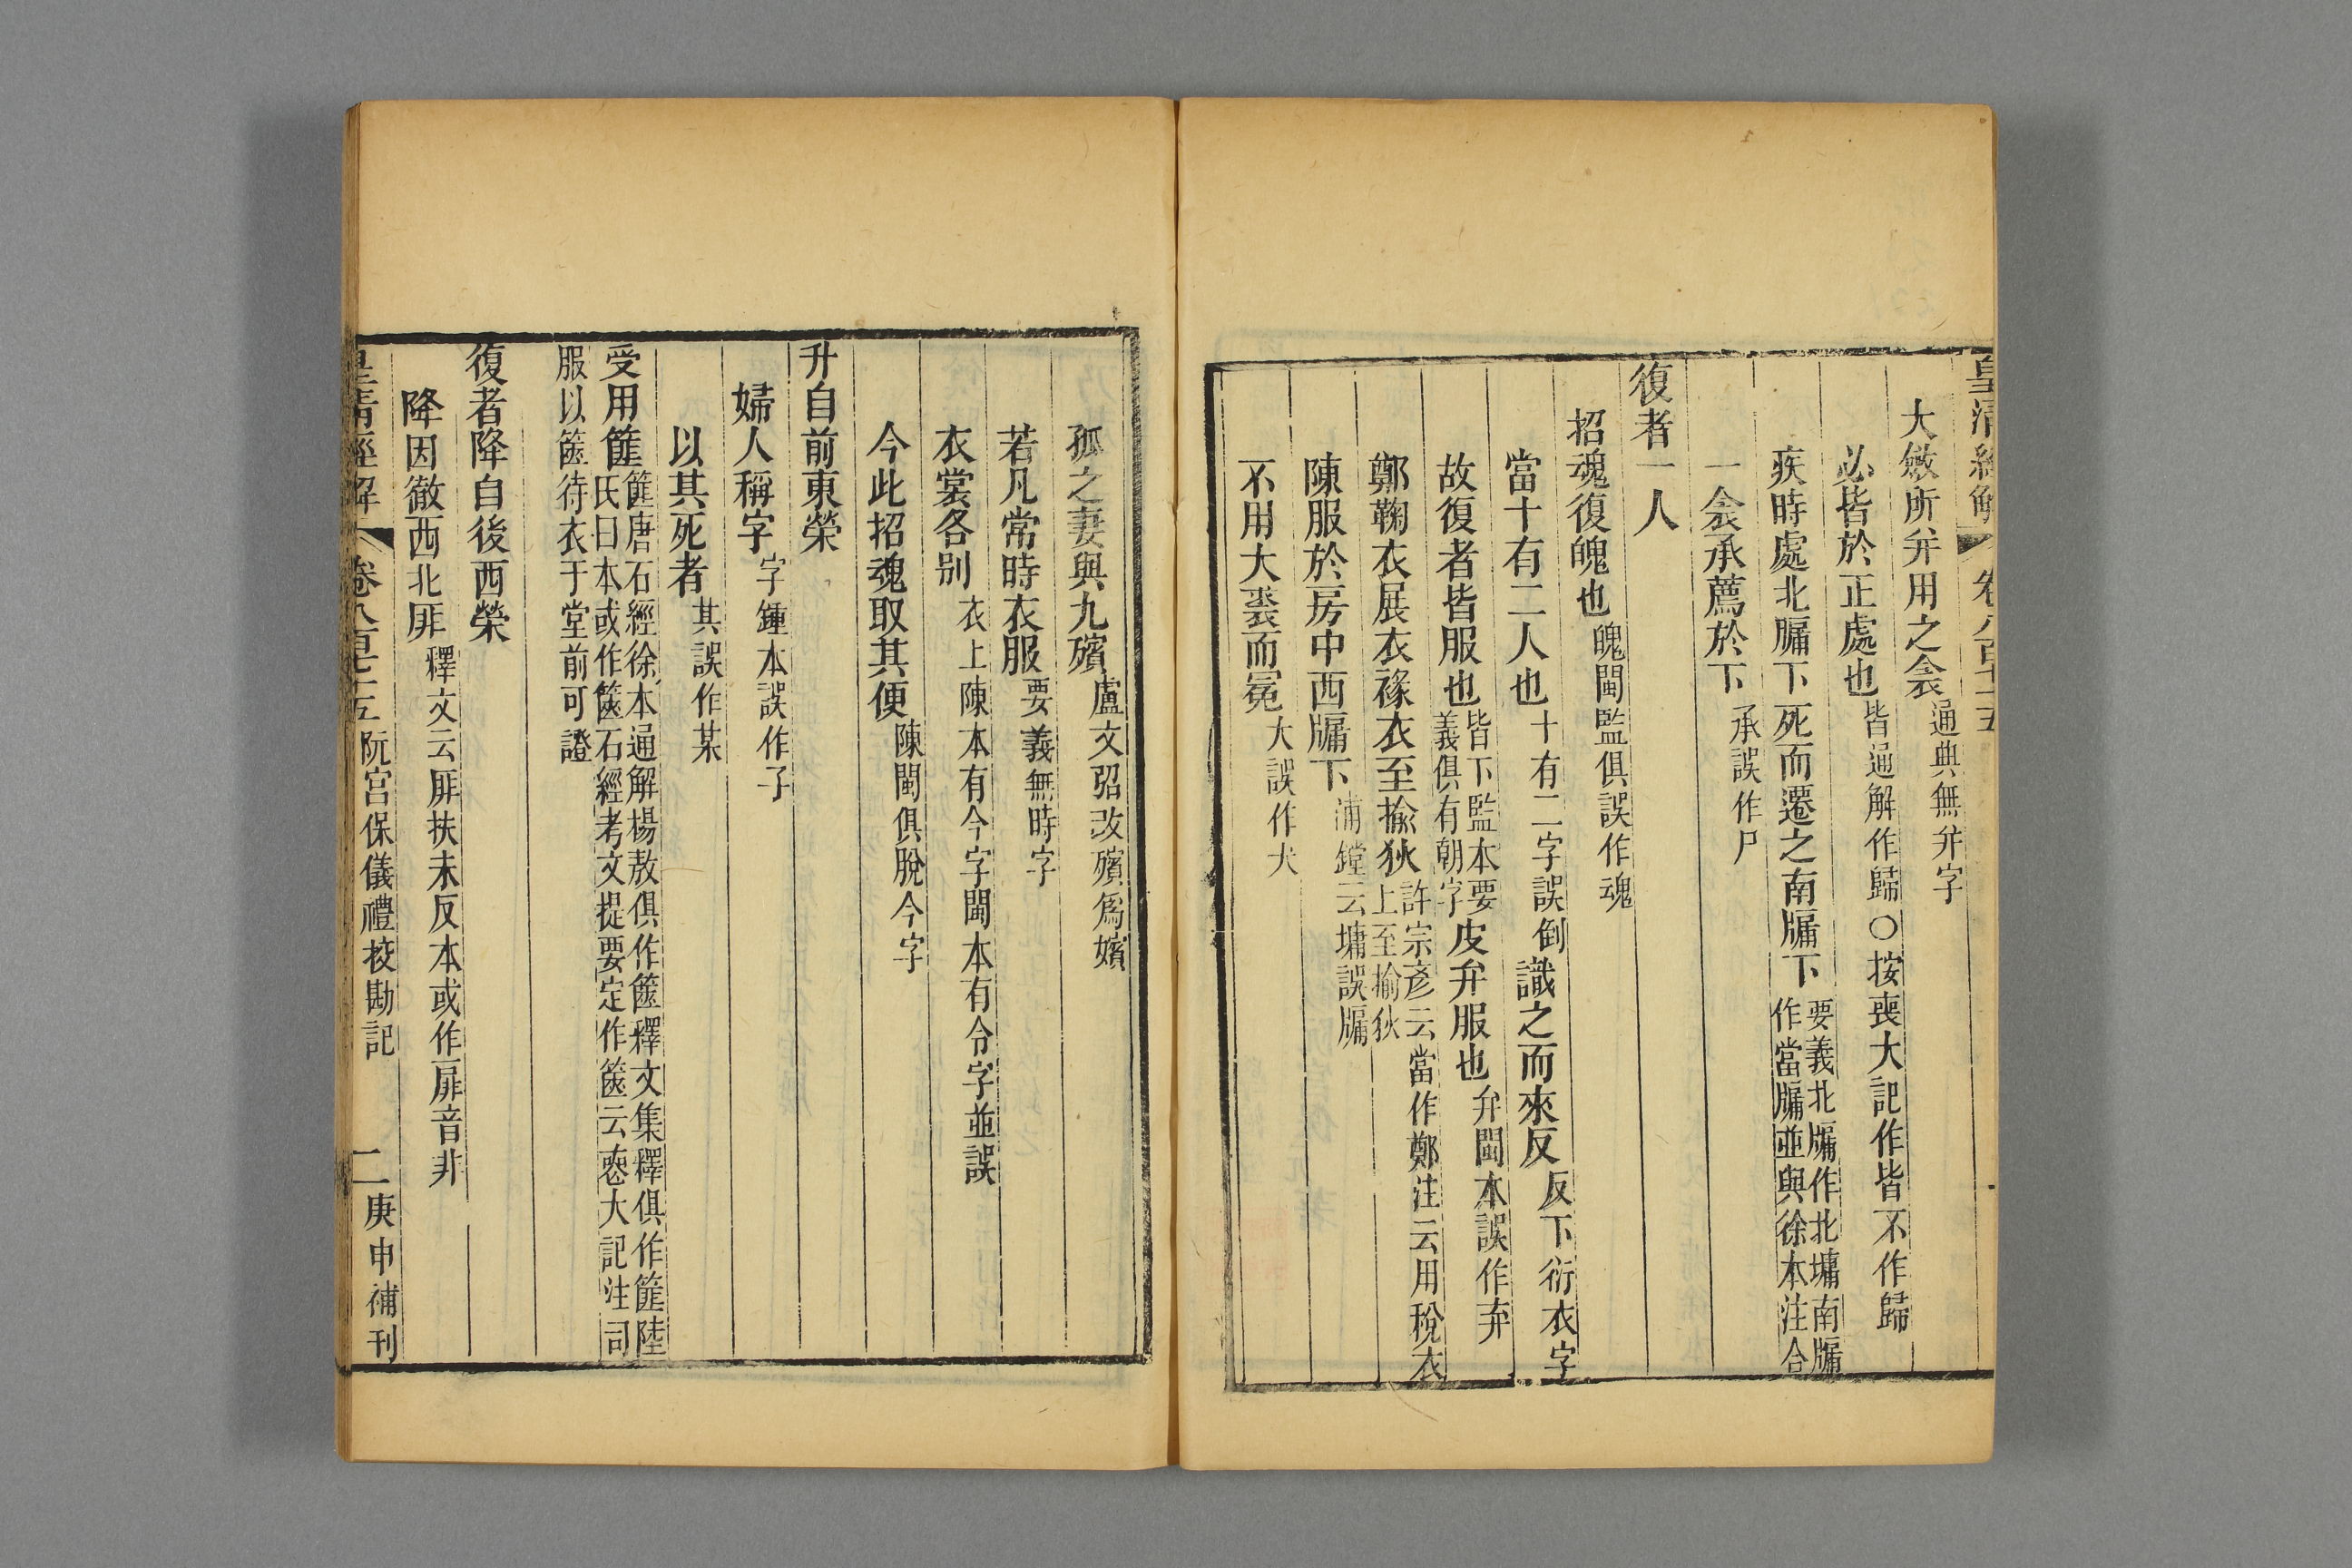 皇清經解 卷八百七十五
大斂所幷用之衾通典無幷字
必皆於正處也皆通解作歸○按喪大記作皆不作歸
疾時處北牖下死而遷之南牖下要義北牖作北墉南牖作當牖並與徐本注合
一衾承薦於下承誤作尸
復者一人
招魂復魄也魄閩監俱誤作魂
當十有二人也十有二字誤倒識之而來反反下衍衣字
故復者皆服也皆下監本要義俱有朝字皮弁服也弁閩本誤作弃
鄭鞠衣展衣褖衣至揄狄許宗彥云當作鄭注云用稅衣上至揄狄
陳服於房中西牖下浦鏜云墉誤牖
不用大裘而冕大誤作犬
孤之妻與九殯盧文弨改殯爲嬪
若凡常時衣服要義無時字
衣裳各别衣上陳本有今字閩本有令字並誤
今此招魂取其便陳閩俱脫今字
升自前東榮
婦人稱字字鍾本誤作子
以其死者其誤作某
受用篚篚唐石經徐本通解楊敖俱作篋釋文集釋俱作篚陸氏曰本或作篋石經考文提要定作篋云喪大記注司
服以篋待衣于堂前可證
復者降自後西榮
降因徹西北厞釋文云厞扶未反本或作扉音非
皇清經解 卷八百七十五 阮宮保儀禮挍勘記 二 庚申補刊